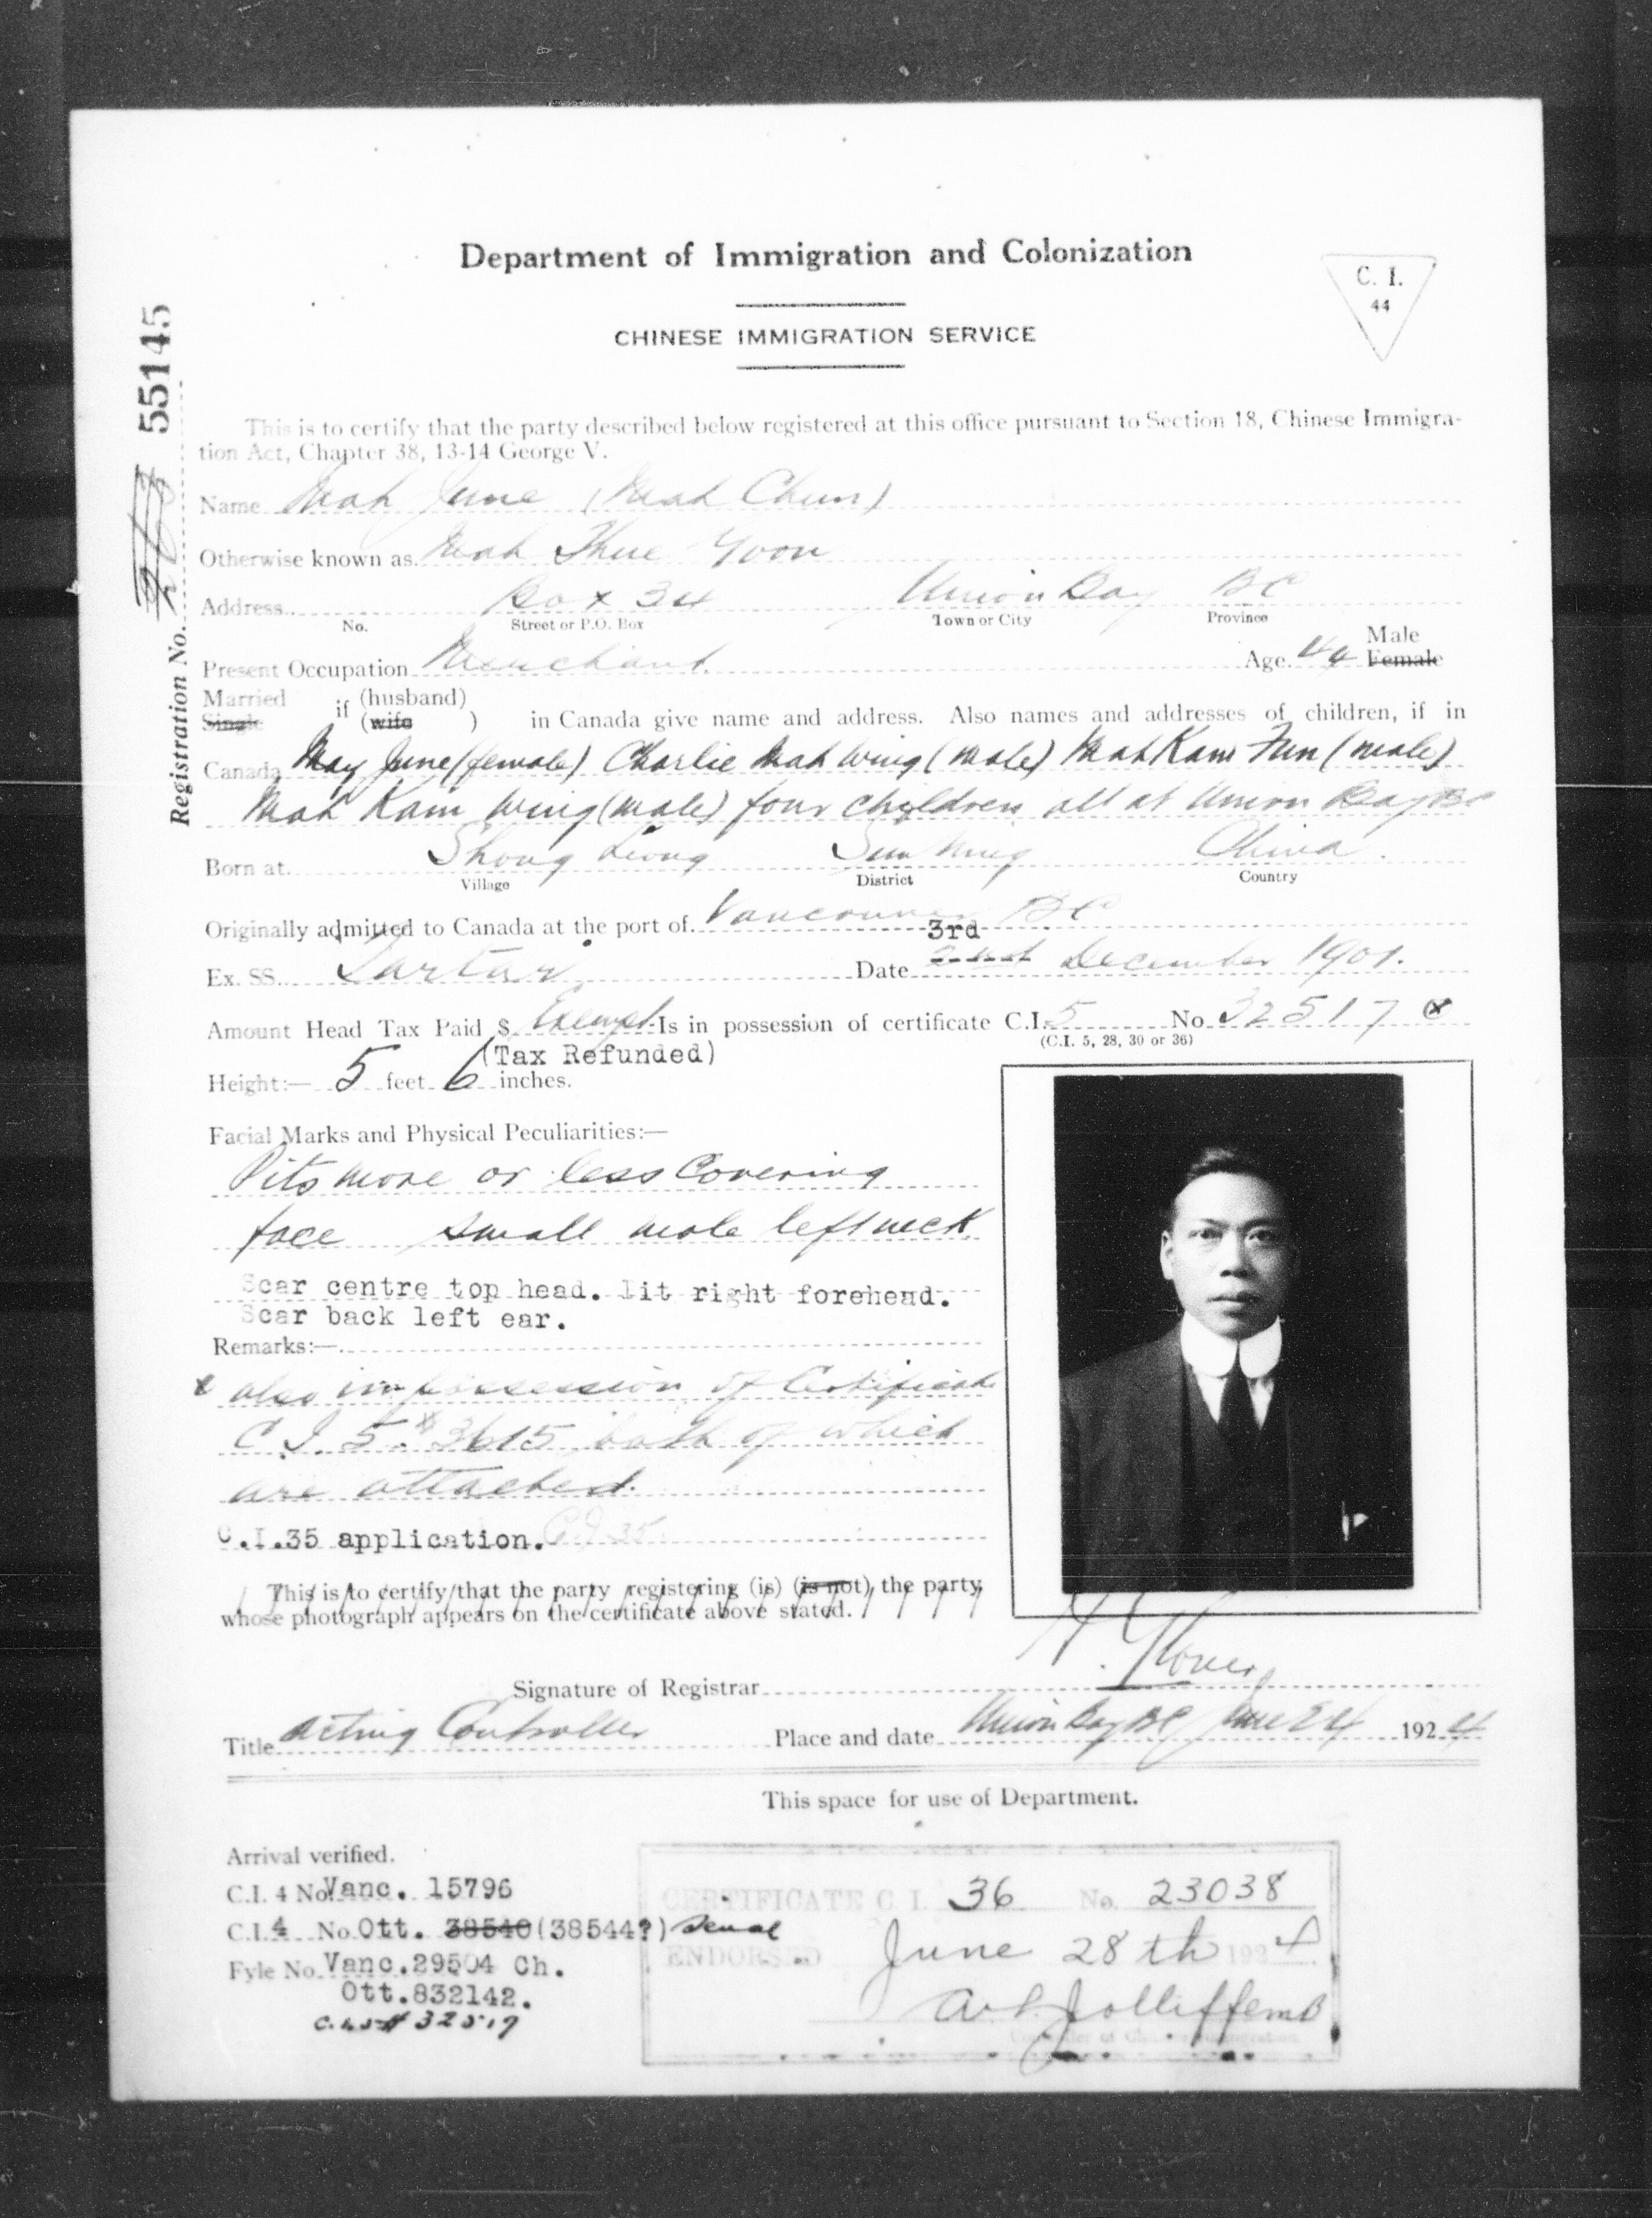 Department of Immigration and Colonization
C. I.
44
CHINESE IMMIGRATION SERVICE
Registration No. 55145
This is to certify that the party described below registered at this office pursuant to Section 18, Chinese Immigra-
tion Act, Chapter 38, 13-14 George V.
Name Mah June (Mah Chun)
Otherwise known as Mah Thue Yoon
Address Box 34 Union Bay BC
No. Street or P.O. Box Town or City Province
Male
Present Occupation Merchant. Age 44 Female
Married (husband)
Single if (wife ) in Canada give name and address. Also names and addresses of children, if in
Canada May June (female) Charlie Mah Wing (male) Mah Kam Fun (male)
Mah Kam Wing (male) four children all at Union Bay BC
Born at Shong Leong Sun Ning China.
Village District Country
Originally admitted to Canada at the port of Vancouver BC
3rd
Ex. SS. Tartar Date December 1901.
Amount Head Tax Paid $ Exempt Is in possession of certificate C.I. 5 No 32517 x
(C.I. 5, 28, 30 or 36)
(Tax Refunded)
Height:— 5 feet 6 inches.
Facial Marks and Physical Peculiarities:—
Pits more or less Covering
face small mole left neck
Scar centre top head. Pit right forehead.
Scar back left ear.
Remarks:—
x also in possession of Certificate
C I. 5. # 3615 both of which
are attached.
C.I.35 application. C.I 35
This is to certify that the party registering (is) (is not) the party
whose photograph appears on the certificate above stated.
Signature of Registrar H. Glover
Title Acting Controller Place and date Union Bay BC June 24 1924
This space for use of Department.
Arrival verified.
C.I. 4 No Vanc. 15796
C.I. 4 No. Ott. 38540 (38544?) Serial
Fyle No. Vanc. 29504 Ch.
Ott. 832142.
C.I.5 # 32517
CERTIFICATE C. I. 36 No. 23038
ENDORSED June 28th 1924
Controller of Chinese Immigration